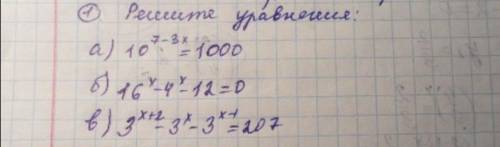 ① Решите уравнения:
а) 10^{7-3x}=1000
б) 16^x-4^x-12=0
в) 3^{x+2}-3^x-3^{x-1}=207